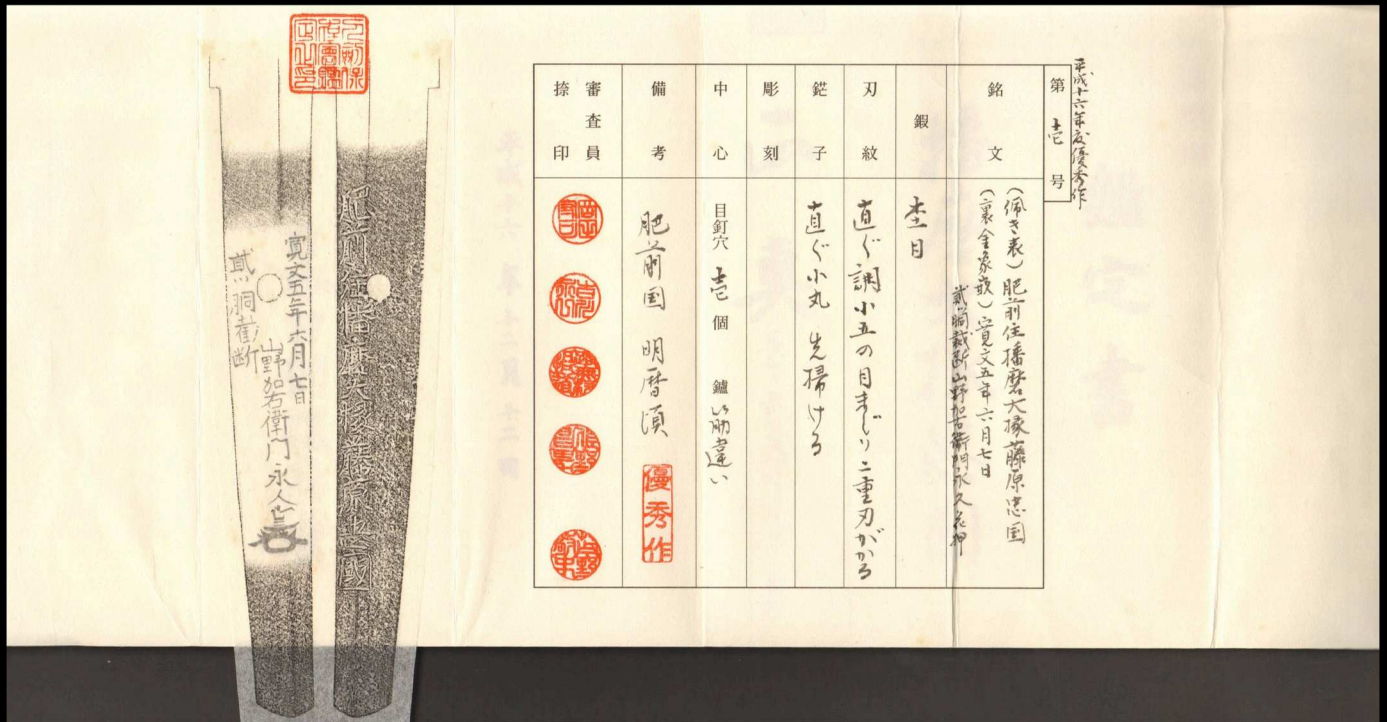 平成十六年度優秀作
第 壱 号
銘文
(佩き表)肥前住播磨大掾藤原忠国
(裏金象嵌)寛文五年六月七日
貮ッ胴裁断山野加右衛門永久花押
鍛
杢目
刃紋
直ぐ調小五の目まじり二重刃がかる
鋩子
直ぐ小丸 先掃ける
彫刻
中心
目釘穴 壱 個 鑢 筋違い
備考
肥前国 明暦頃
優秀作
審査員
捺印
肥前住播磨大掾藤原忠國
寛文五年六月七日
山野加右衛門永久
貮ッ胴截断